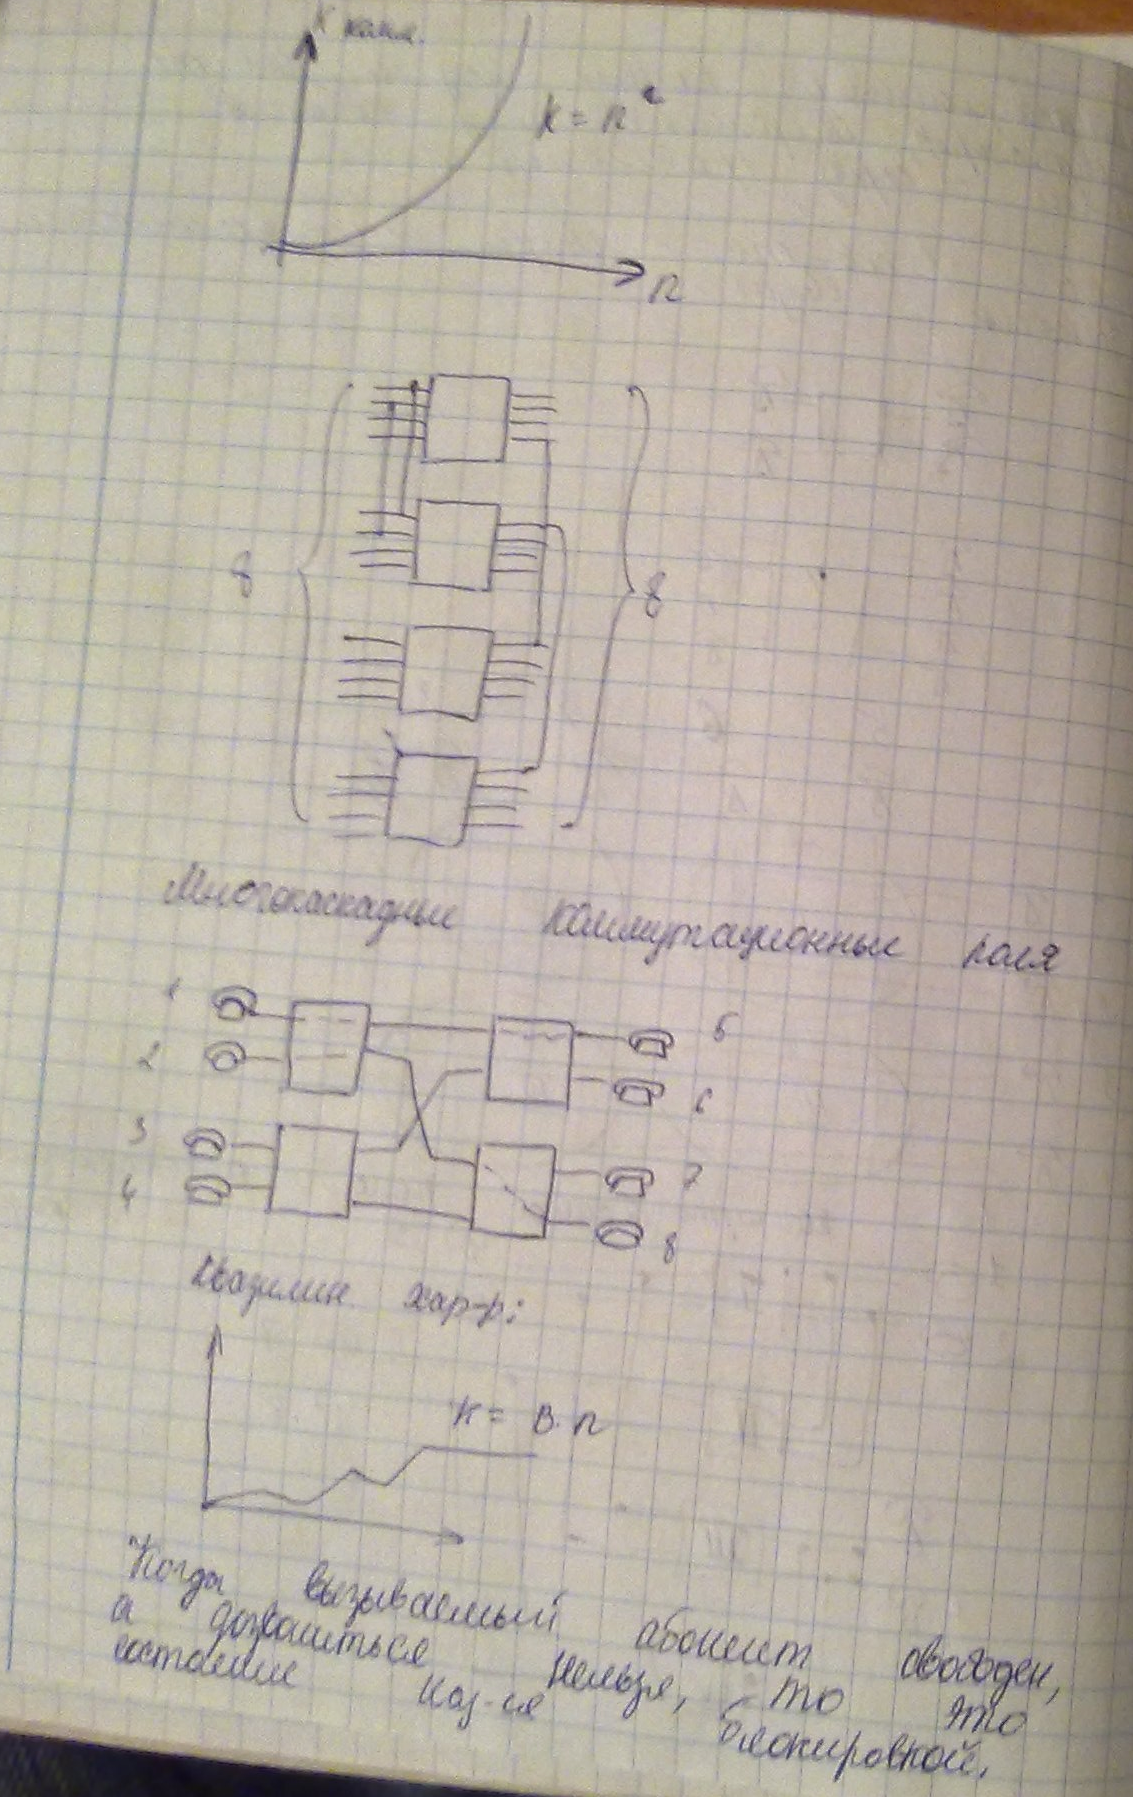 K комм.
K = n²
n
8
8
Многокаскадные коммутационные поля
1
5
2
6
3
7
4
8
Квазилин. хар-р:
K = B·n
Когда вызываемый абонент свободен,
а дозвониться нельзя, то это
состояние наз-ся блокировкой.